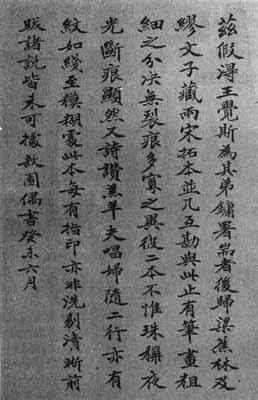 茲假淂王覺斯為其弟鏞署耑者後歸梁蕉林及
繆文子藏兩宋拓本並几互勘與此止有筆畫粗
細之分決無裂痕多寡之異彼二本不惟珠稱夜
光斷痕顯然又詩讚羔羊夫唱婦隨二行亦有
紋如綫至糢糊處此本每有指印亦非洗剔清晰前
跋諸說皆未可據敔園偶書癸未六月